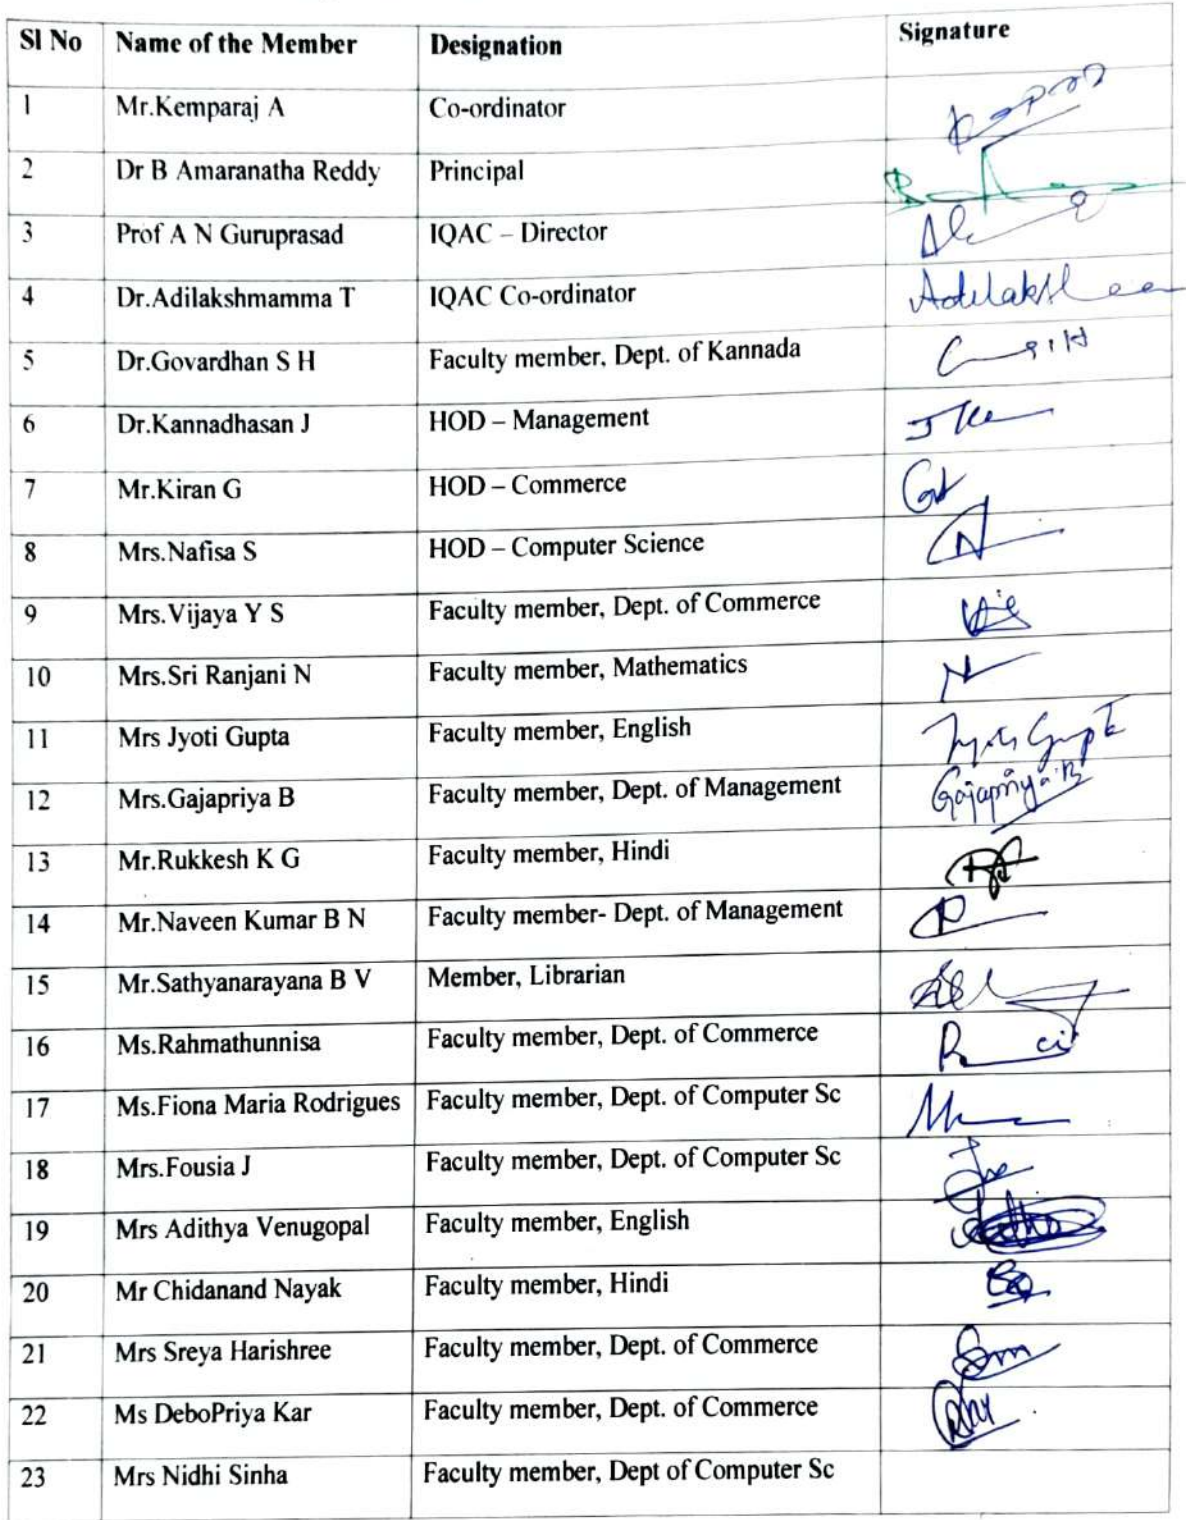 Sl No Name of the Member Designation Signature
1 Mr.Kemparaj A Co-ordinator
2 Dr B Amaranatha Reddy Principal
3 Prof A N Guruprasad IQAC – Director
4 Dr.Adilakshmamma T IQAC Co-ordinator
5 Dr.Govardhan S H Faculty member, Dept. of Kannada
6 Dr.Kannadhasan J HOD – Management
7 Mr.Kiran G HOD – Commerce
8 Mrs.Nafisa S HOD – Computer Science
9 Mrs.Vijaya Y S Faculty member, Dept. of Commerce
10 Mrs.Sri Ranjani N Faculty member, Mathematics
11 Mrs Jyoti Gupta Faculty member, English
12 Mrs.Gajapriya B Faculty member, Dept. of Management Gajapriya B
13 Mr.Rukkesh K G Faculty member, Hindi
14 Mr.Naveen Kumar B N Faculty member- Dept. of Management
15 Mr.Sathyanarayana B V Member, Librarian
16 Ms.Rahmathunnisa Faculty member, Dept. of Commerce
17 Ms.Fiona Maria Rodrigues Faculty member, Dept. of Computer Sc
18 Mrs.Fousia J Faculty member, Dept. of Computer Sc
19 Mrs Adithya Venugopal Faculty member, English
20 Mr Chidanand Nayak Faculty member, Hindi
21 Mrs Sreya Harishree Faculty member, Dept. of Commerce
22 Ms DeboPriya Kar Faculty member, Dept. of Commerce
23 Mrs Nidhi Sinha Faculty member, Dept of Computer Sc